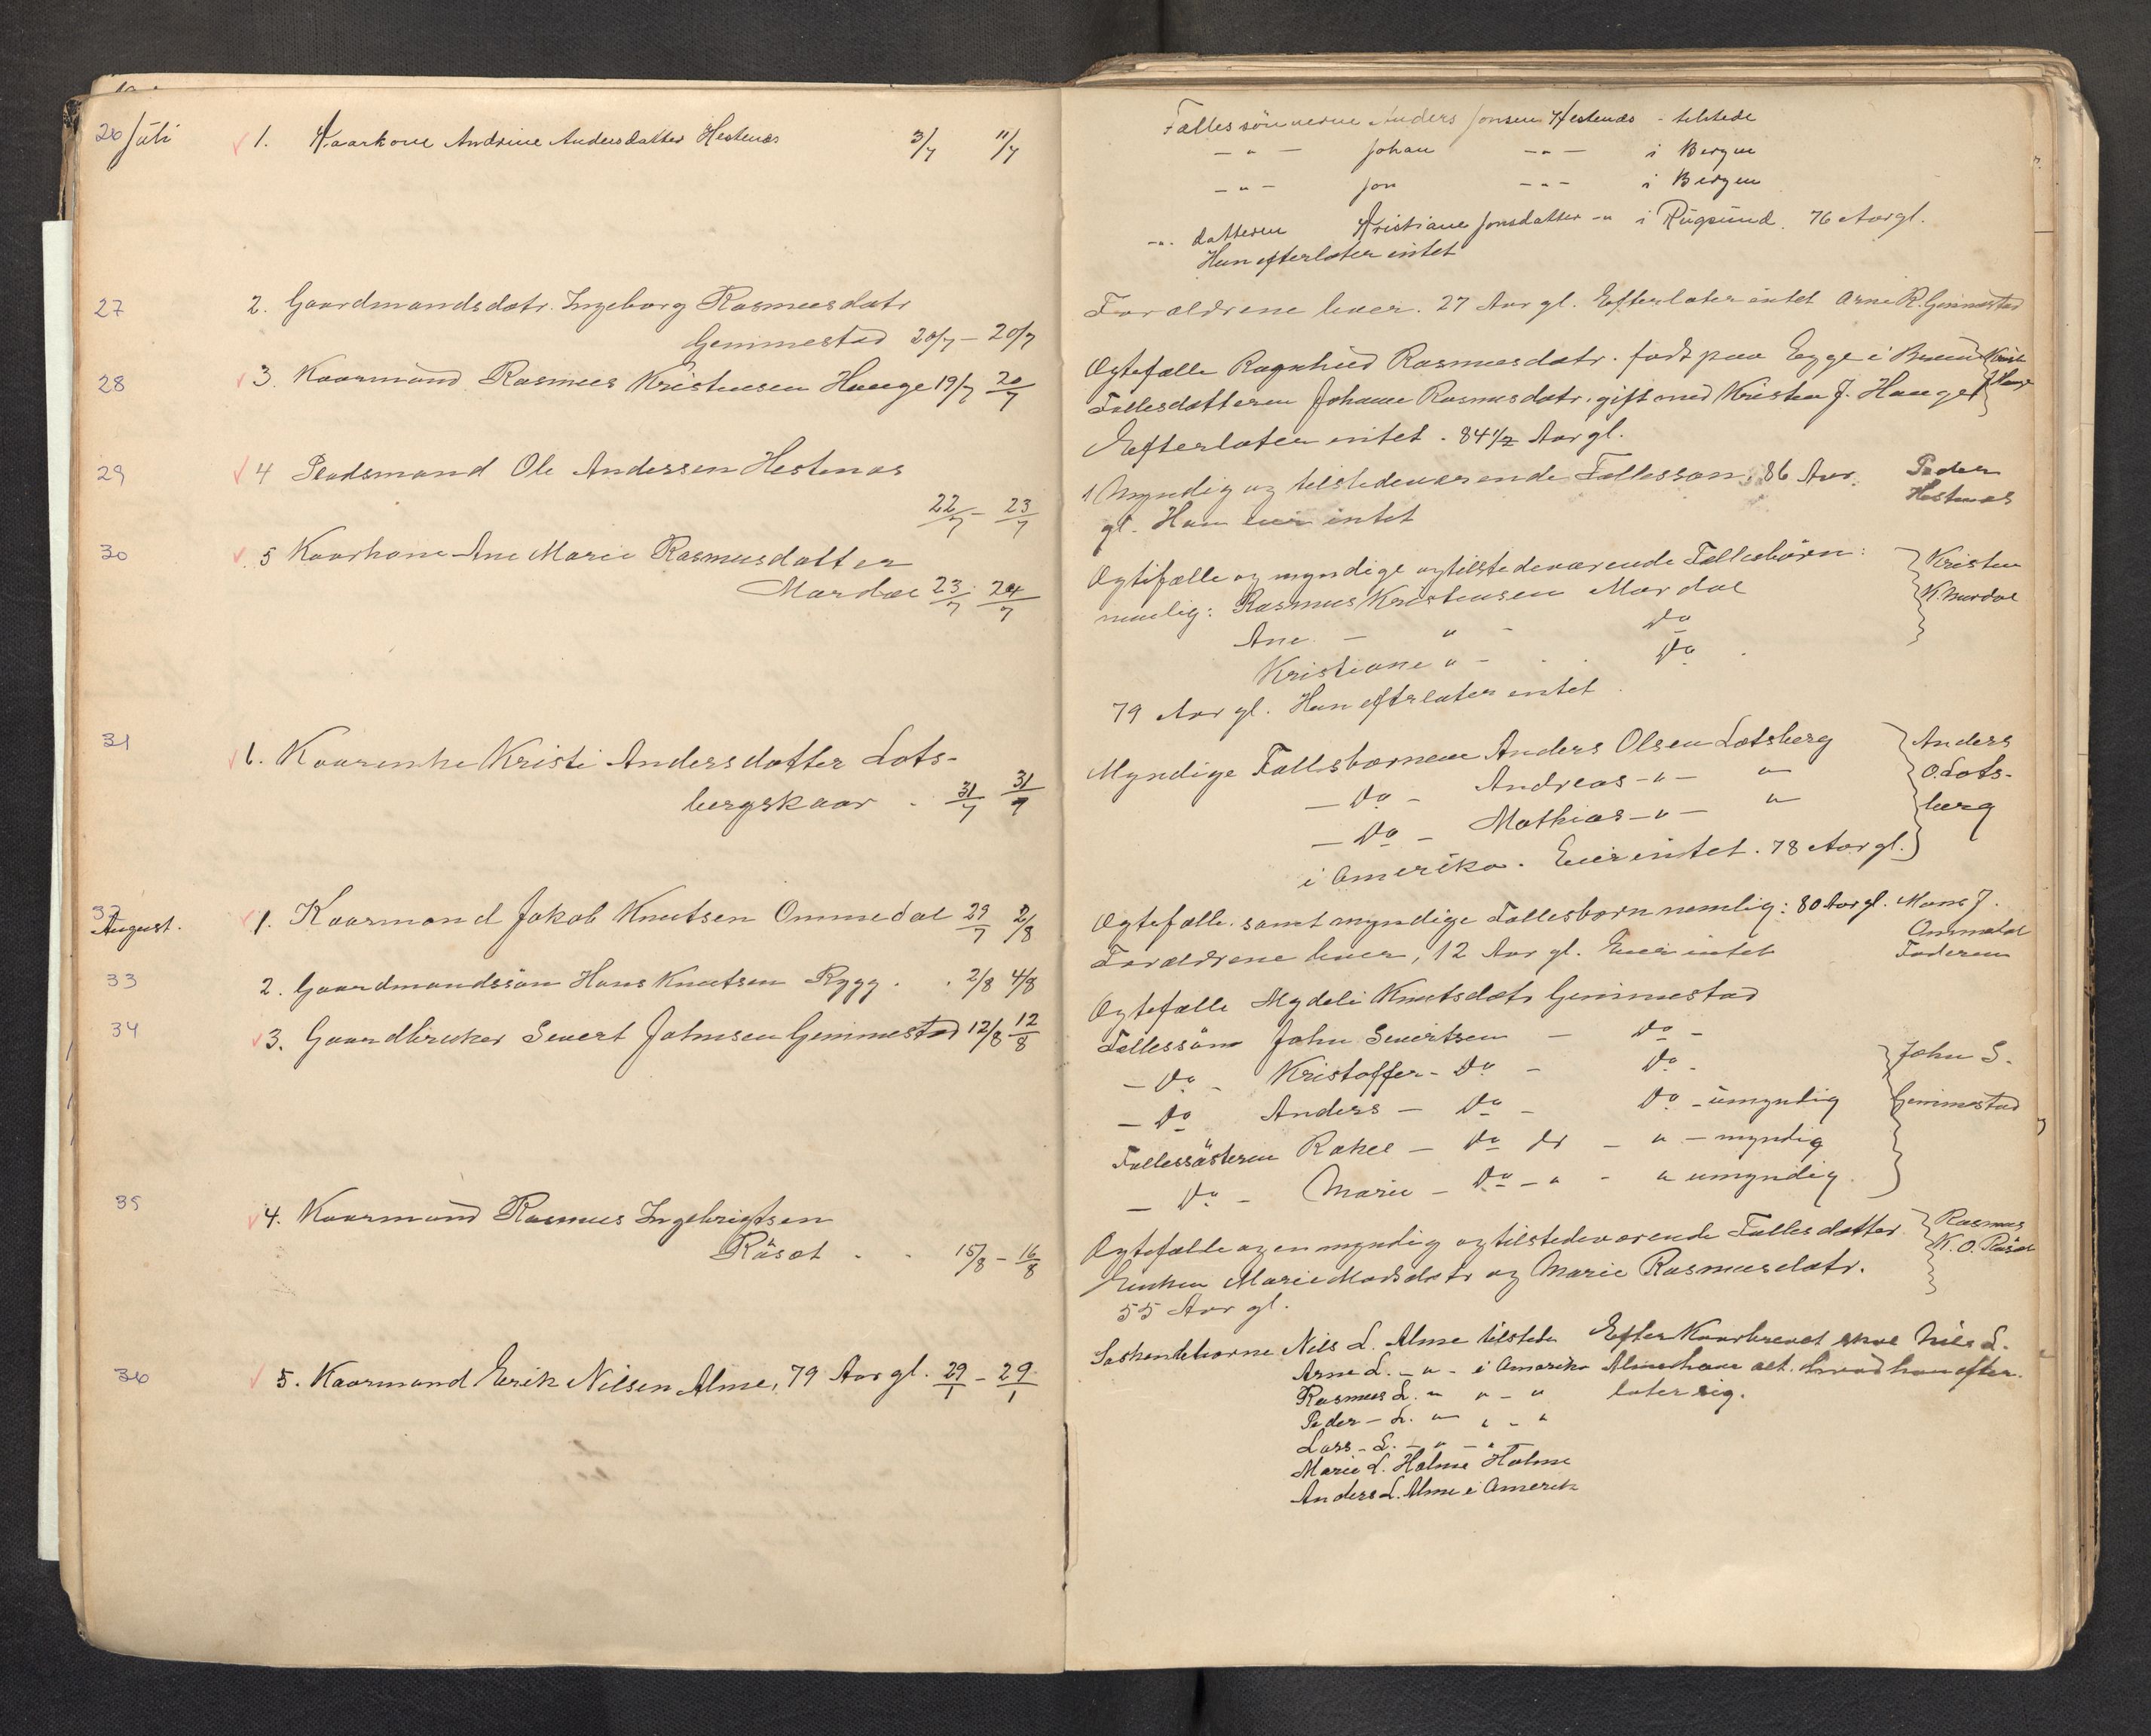 26 Juli 1. Kaarkone Andrine Andersdatter Hestenæs 3/7 11/7
27 2. Gaardmandsdatr. Ingeborg Rasmusdatr
Gemmestad 20/7 – 20/7
28 3. Kaarmand Rasmus Kristensen Hauge 19/7 20/7
29 4 Pladsmand Ole Anderssen Hestenæs
22/7 – 23/7
30 5 Kaarkone Ane Marie Rasmusdatter
Mardal 23/7 24/7
31 6. Kaarenke Kristi Andersdatter Lots-
bergskaar . 31/7 31/7
32
August. 1. Kaarmand Jakob Knutsen Ommedal 29/7 2/8
33 2. Gaardmandssön Hans Knutsen Rygg . . 2/8 4/8
34 3. Gaardbruker Severt Johnsen Gemmestad 12/8 12/8
35 4. Kaarmand Rasmus Ingebrigtsen
Råsæt - - 15/8 – 16/8
36 5. Kaarmand Erik Nilsen Alme, 79 Aar gl. 29/1 – 29/1
Fællessönnerne Anders Jonsen Hestenæs - tilstede
— " — Johan — " — i Bergen
— " — Jon — " — i Bergen
— " datteren Kristiane Jonsdatter — " i Rügsund. 76 Aar gl.
Hun efterlater intet
Forældrene lever. 27 Aar gl. Efterlater intet Arne R. Gemmestad
Ægtefælle Ragnhild Rasmusdatr. født paa Egge i
Fællesdatteren Johanne Rasmusdatr. gift med Kristen J. Hauge
Efterlater intet. 84 1/2 Aar gl.
1 Myndig og tilstedeværende Fællessøn, 86 Aar. Peder
gl. Han eier intet Hestenæs
Ægtefælle og myndige og tilstedeværende Fællesbörn: Kristen
nemlig: Rasmus Kristensen Mardal K. Mardal
Ane — " — Do
Kristiane " — Do
79 Aar gl. Hun efterlater intet.
Myndige Fællesbørnene Anders Olsen Lotsberg Anders
— Do — Andreas — " — " O. Lots-
— Do — Mathias — " — " berg
i Amerika. Eier intet. 78 Aar gl.
Ægtefælle samt myndige Fællesbørn nemlig: 80 Aar gl. Mons J.
Ommedal
Forældrene lever, 12 Aar gl. Eier intet Faderen
Ægtefælle Mydeli Knutsdatr Gemmestad
Fællessön John Severtsen — Do —
— Do — Kristoffer — Do — Do — John S.
— Do Anders — Do — Do — ümyndig Gemmestad
Fællessösteren Rakel — Do dr — " — myndig
— Do — Marie — Do — " — " umyndig.
Ægtefælle og en myndig og tilstedeværende Fællesdatter Rasmus
Enken Marie Madsdatr og Marie Rasmusdatr. K. O. Råsæt
55 Aar gl.
Søskendebørne Nils L. Alme tilstede Efter Kaarbrevet skal Nils L.
Arne L. — " — i Amerika Alme have alt hvad han efter-
Rasmus L. " " — " later sig.
Peder — L. " " — "
Lars — L. — " — "
Marie L. Holme Holme
Anders L. Alme i Amerik